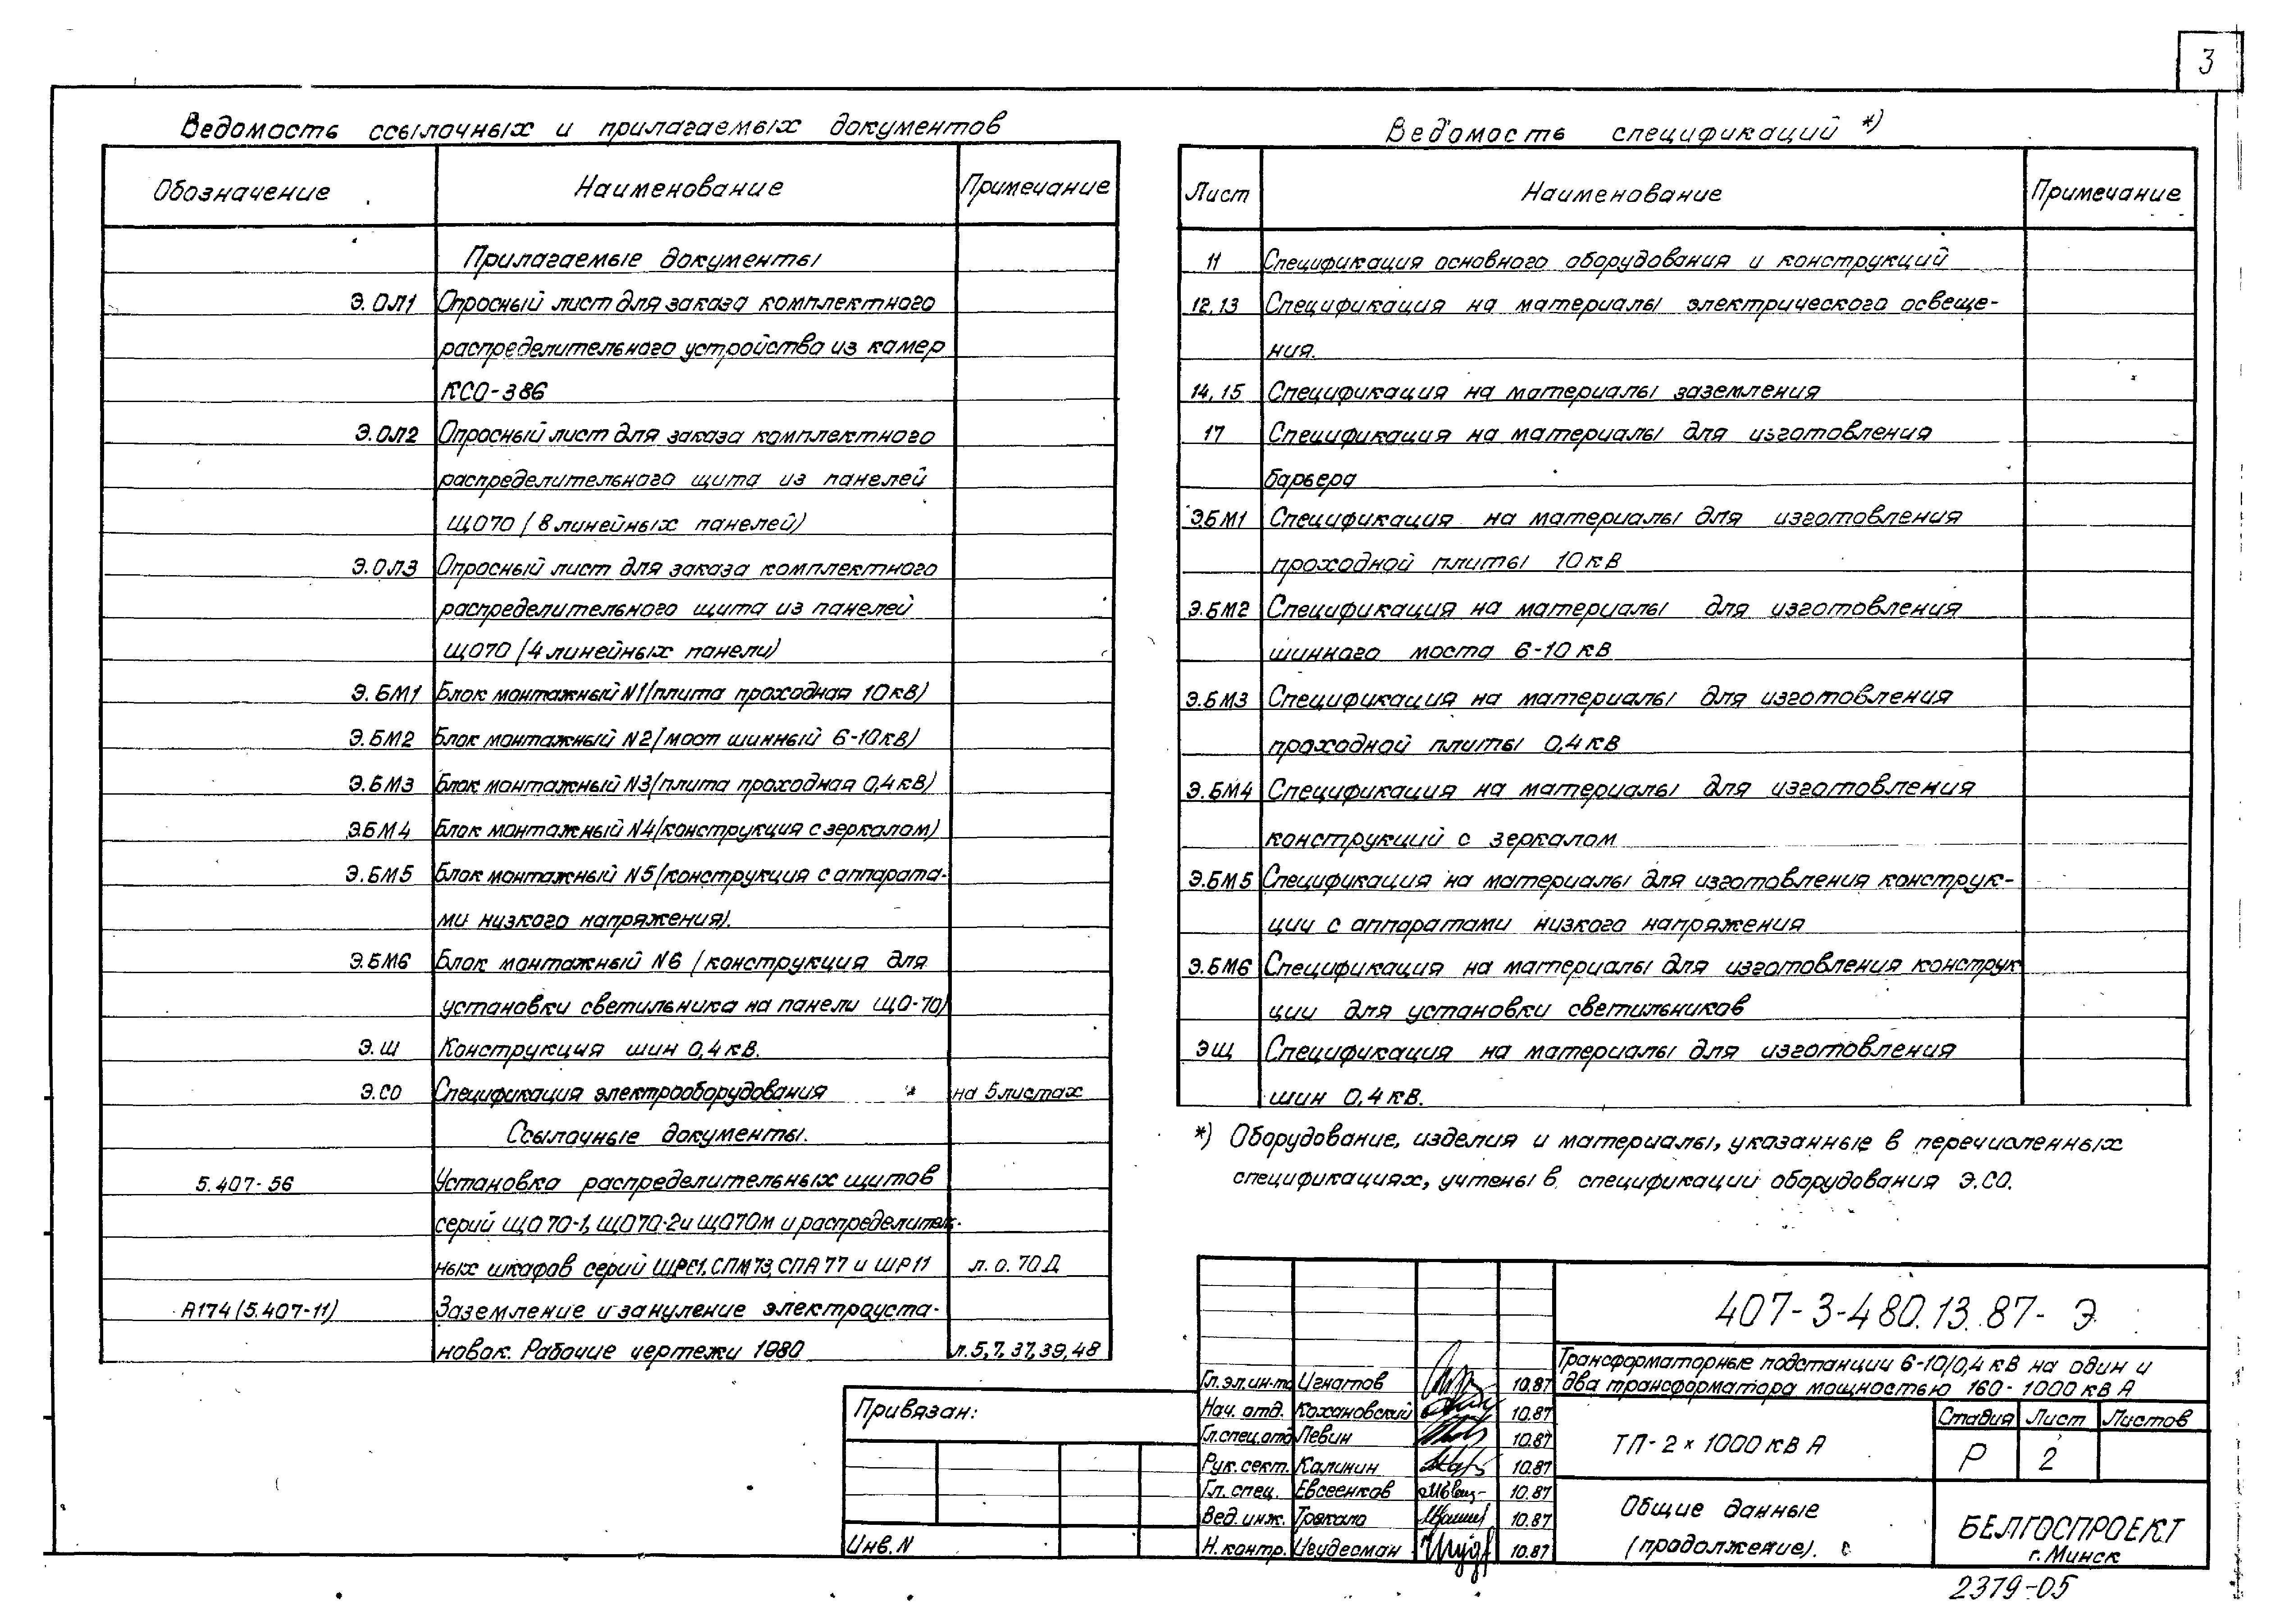 3
Ведомость ссылочных и прилагаемых документов
Обозначение Наименование Примечание
Прилагаемые документы
Э.ОЛ1 Опросный лист для заказа комплектного
распределительного устройства из камер
КСО-386
Э.ОЛ2 Опросный лист для заказа комплектного
распределительного щита из панелей
ЩО70 (8 линейных панелей)
Э.ОЛ3 Опросный лист для заказа комплектного
распределительного щита из панелей
ЩО70 (4 линейных панели)
Э.БМ1 Блок монтажный N1 (плита проходная 10кВ)
Э.БМ2 Блок монтажный N2 (мост шинный 6-10кВ)
Э.БМ3 Блок монтажный N3 (плита проходная 0,4кВ)
Э.БМ4 Блок монтажный N4 (конструкция с зеркалом)
Э.БМ5 Блок монтажный N5 (конструкция с аппарата-
ми низкого напряжения).
Э.БМ6 Блок монтажный N6 (конструкция для
установки светильника на панели ЩО-70)
Э.Ш Конструкция шин 0,4кВ.
Э.СО Спецификация электрооборудования на 5 листах
Ссылочные документы.
5.407-56 Установка распределительных щитов
серий ЩО70-1, ЩО70-2 и ЩО70м и распределитель-
ных шкафов серий ШРС1, СПМ73, СПА77 и ШР11 л.о. 70Д
А174 (5.407-11) Заземление и зануление электроуста-
новок. Рабочие чертежи 1980 л.5,7,37,39,48
Ведомость спецификаций *)
Лист Наименование Примечание
11 Спецификация основного оборудования и конструкций
12,13 Спецификация на материалы электрического освеще-
ния.
14,15 Спецификация на материалы заземления
17 Спецификация на материалы для изготовления
барьера
Э.БМ1 Спецификация на материалы для изготовления
проходной плиты 10кВ
Э.БМ2 Спецификация на материалы для изготовления
шинного моста 6-10кВ
Э.БМ3 Спецификация на материалы для изготовления
проходной плиты 0,4кВ
Э.БМ4 Спецификация на материалы для изготовления
конструкций с зеркалом
Э.БМ5 Спецификация на материалы для изготовления конструк-
ции с аппаратами низкого напряжения
Э.БМ6 Спецификация на материалы для изготовления конструк
ции для установки светильников
ЭЩ Спецификация на материалы для изготовления
шин 0,4кВ.
*) Оборудование, изделия и материалы, указанные в перечисленных
спецификациях, учтены в спецификации оборудования Э.СО.
407-3-480.13.87- Э
Трансформаторные подстанции 6-10/0,4кВ на один и
два трансформатора мощностью 160-1000кВА
Гл.эл.ин-та Игнатов 10.87
Нач. отд. Кохановский 10.87
Гл.спец.отд Левин 10.87
Рук.сект. Калинин 10.87
Гл. спец. Евсеенков 10.87
Вед. инж. 10.87
Н. контр. 10.87
ТП-2×1000кВА
Стадия Лист Листов
Р 2
Общие данные
(продолжение).
БЕЛГОСПРОЕКТ
г. Минск
Привязан:
Инв.N
2379-05